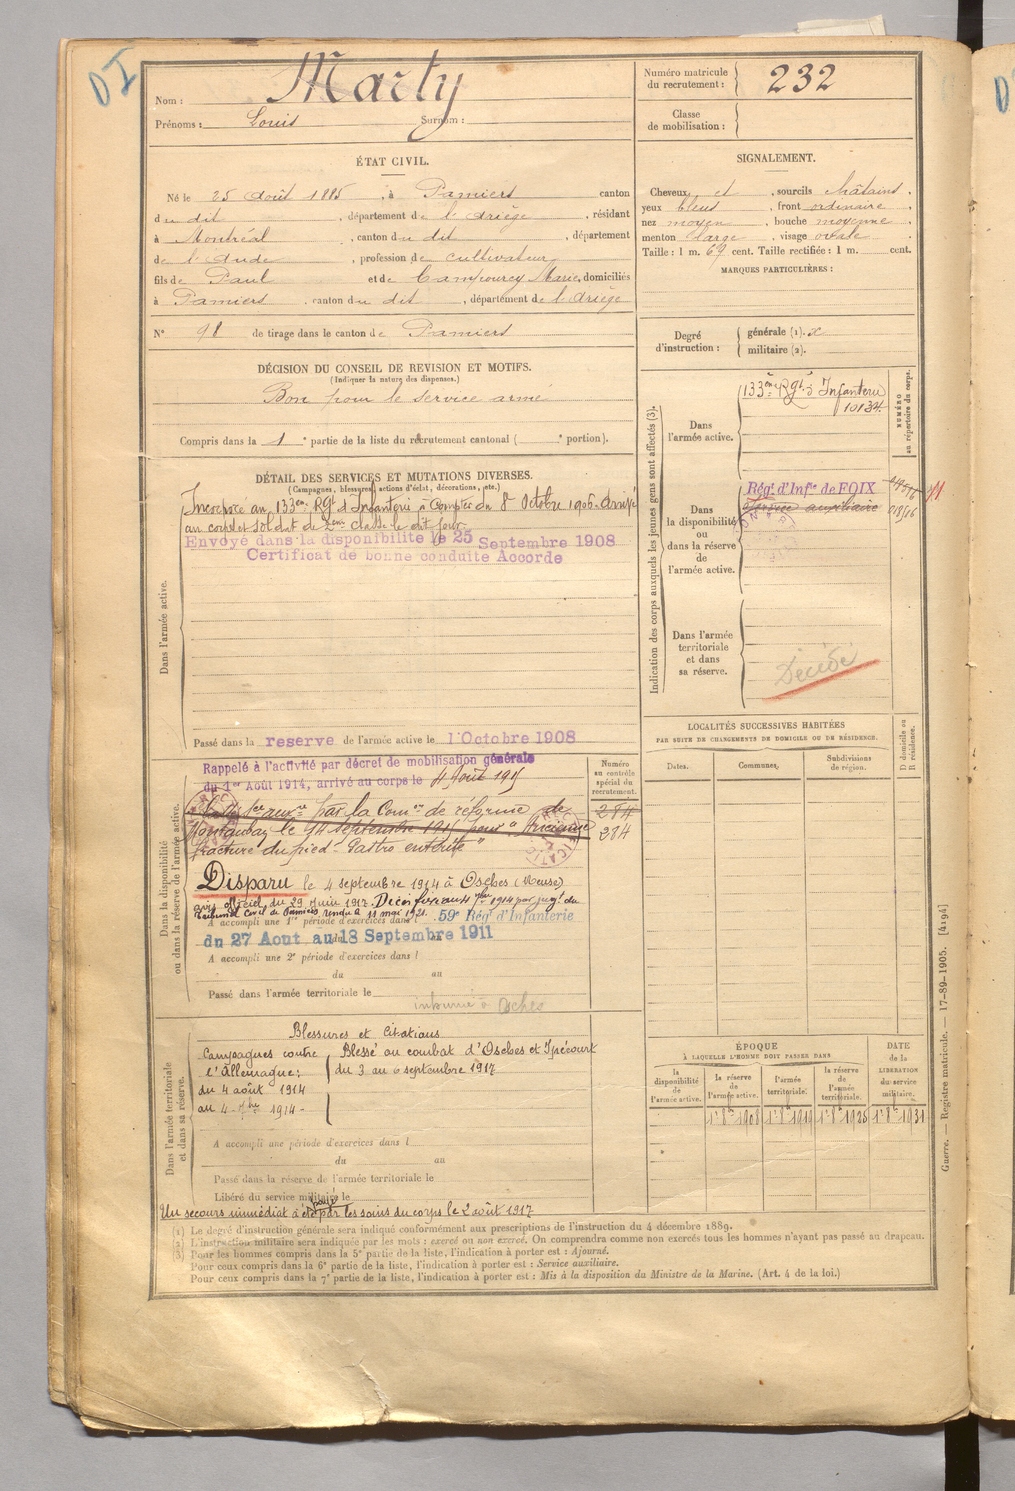 DI
Nom : Marty
Prénoms : Louis Surnom :
Numéro matricule du recrutement : 232
Classe de mobilisation :
ÉTAT CIVIL.
Né le 25 Août 1885, à Pamiers canton
du dit, département de l'Ariège, résidant
à Montréal, canton du dit, département
de l'Aude, profession de cultivateur
fils de Paul et de Campourcy Marie, domiciliés
à Pamiers, canton du dit, département de l'Ariège
N° 98 de tirage dans le canton de Pamiers
SIGNALEMENT.
Cheveux et, sourcils châtains,
yeux bleus, front ordinaire,
nez moyen, bouche moyenne
menton large, visage ovale.
Taille : 1 m. 69 cent. Taille rectifiée : 1 m. cent.
MARQUES PARTICULIÈRES :
Degré d'instruction : générale (1). militaire (2).
DÉCISION DU CONSEIL DE REVISION ET MOTIFS.
(Indiquer la nature des dispenses.)
Bon pour le service armé
Compris dans la 1e partie de la liste du recrutement cantonal ( e portion).
DÉTAIL DES SERVICES ET MUTATIONS DIVERSES.
(Campagnes, blessures, actions d'éclat, décorations, etc.)
Dans l'armée active.
Incorporé au 133em Rgt d'Infanterie à Compter du 8 Octobre 1906. Arrivé
au corps et soldat de 2em classe le dit jour.
Envoyé dans la disponibilité le 25 Septembre 1908
Certificat de bonne conduite Accordé
Passé dans la reserve de l'armée active le 1 Octobre 1908
Dans la disponibilité ou dans la réserve de l'armée active.
Rappelé à l'activité par décret de mobilisation générale
du 1er Août 1914, arrivé au corps le 4 Août 191
par la Comon de réforme de
Montauban le 14 septembre 191 pour "Ancienne
fracture du pied - Gastro entérite"
Disparu le 4 septembre 1914 à Osches (Meuse)
avis officiel du 29 Juin 1917. Décès fixé au 4 7bre 1914 par jugt du
Tribunal Civil de Pamiers rendu le 11 mai 1921.
A accompli une 1re période d'exercices dans l 59e Régt d'Infanterie
du 27 Aout au 18 Septembre 1911
A accompli une 2e période d'exercices dans l
du au
Passé dans l'armée territoriale le
inhumé à Osches
Numéro au contrôle spécial du recrutement.
284
Dans l'armée territoriale et dans sa réserve.
Blessures et Citations
Campagnes contre l'Allemagne :
du 4 août 1914
au 4 7bre 1914
Blessé au combat d'Osches et Ipécourt
du 3 au 6 septembre 1917
A accompli une période d'exercices dans l
du au
Passé dans la réserve de l'armée territoriale le
Libéré du service militaire le
Un secours immédiat a été payé par les soins du corps le 2 août 1917
Indication des corps auxquels les jeunes gens sont affectés (3).
NUMÉRO au répertoire du corps.
Dans l'armée active.
133em Rgt d'Infanterie
10134
Dans la disponibilité ou dans la réserve de l'armée active.
Régt d'Infie de FOIX
Service auxiliaire
Dans l'armée territoriale et dans sa réserve.
Décédé
LOCALITÉS SUCCESSIVES HABITÉES
PAR SUITE DE CHANGEMENTS DE DOMICILE OU DE RÉSIDENCE.
Dates. Communes. Subdivisions de région. D domicile ou R résidence.
ÉPOQUE
À LAQUELLE L'HOMME DOIT PASSER DANS
la disponibilité de l'armée active. la réserve de l'armée active. l'armée territoriale. la réserve de l'armée territoriale.
DATE de la LIBÉRATION du service militaire.
1er 8bre 1908 1er 8bre 1919 1er 8bre 1925 1er 8bre 1931
(1) Le degré d'instruction générale sera indiqué conformément aux prescriptions de l'instruction du 4 décembre 1889.
(2) L'instruction militaire sera indiquée par les mots : exercé ou non exercé. On comprendra comme non exercés tous les hommes n'ayant pas passé au drapeau.
(3) Pour les hommes compris dans la 5e partie de la liste, l'indication à porter est : Ajourné.
Pour ceux compris dans la 6e partie de la liste, l'indication à porter est : Service auxiliaire.
Pour ceux compris dans la 7e partie de la liste, l'indication à porter est : Mis à la disposition du Ministre de la Marine. (Art. 4 de la loi.)
Guerre. — Registre matricule. — 17-89-1905. [4194]